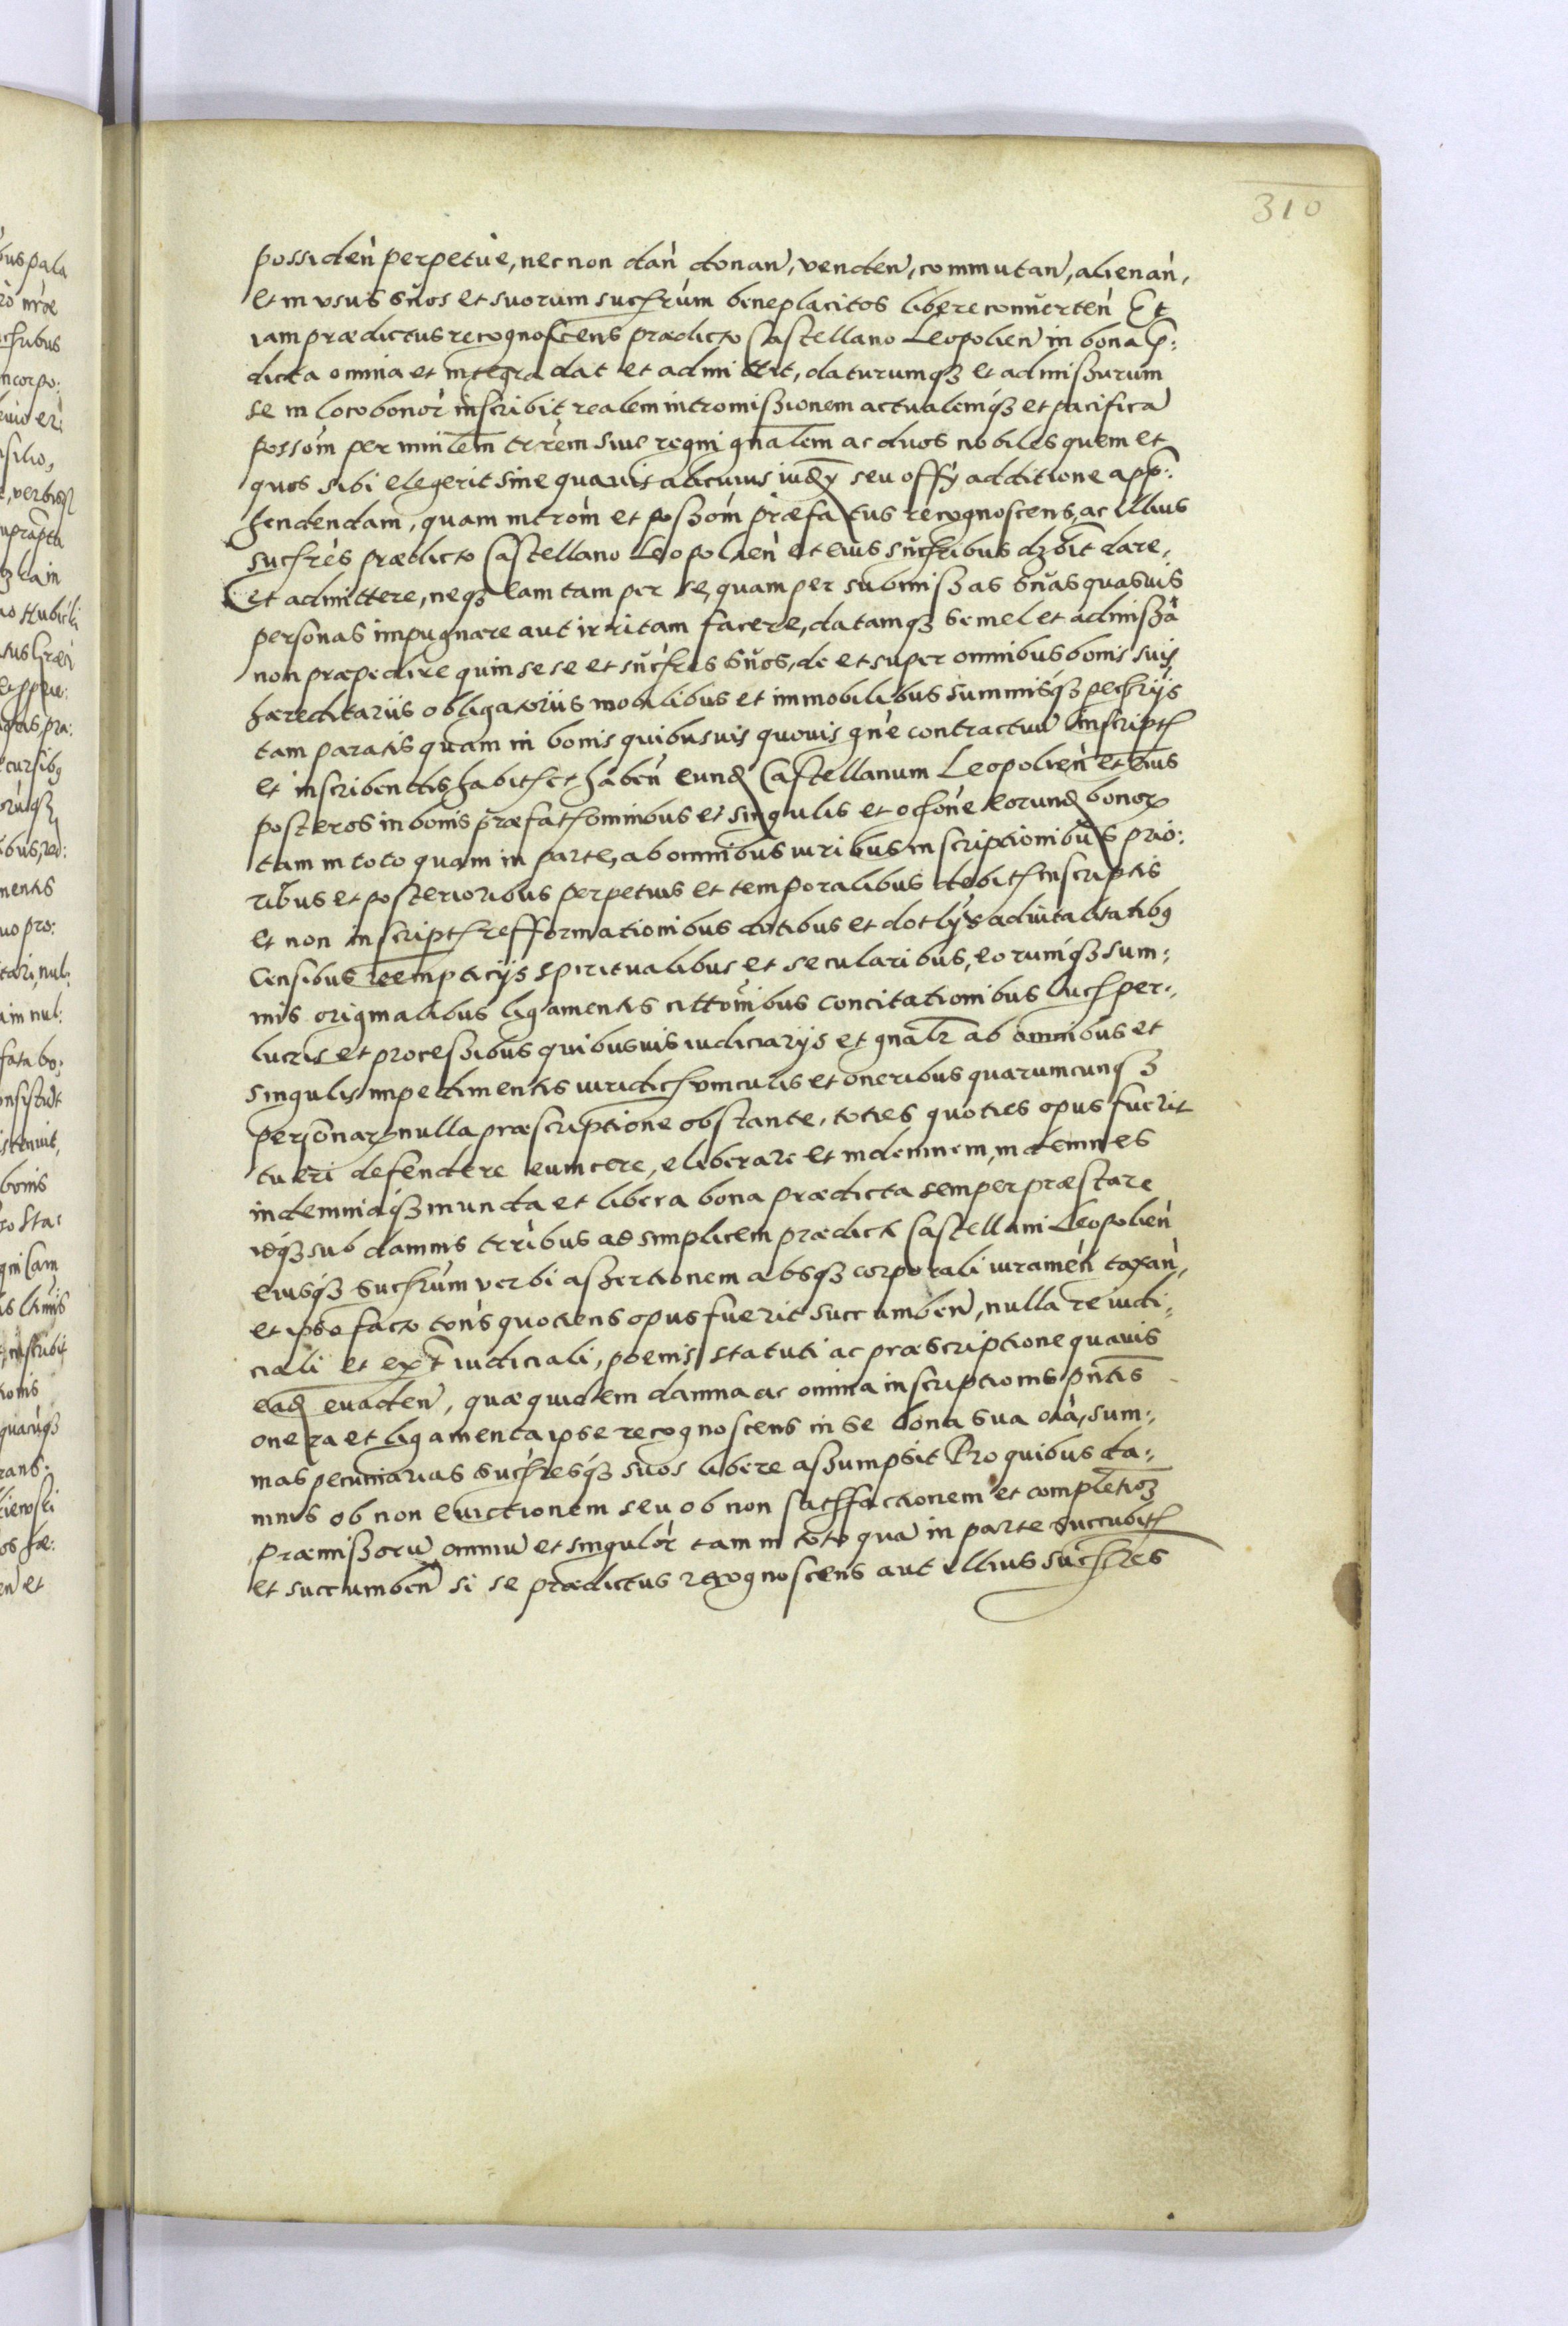 310
possiden perpetue, necnon dan donan, venden, commutan, alienan,
et in vsus suos et suorum succrum beneplacitos libere conuerten Et
iam prædictus recognoscens prædicto Castellano Leopolien in bona p:
dicta omnia et integra dat et admittit, daturumq3 et admissurum
se in loco bonor inscribit realem intromissionem actualemq3 et pacificā
possom per minlem trrem siue regni gnalem ac duos nobiles quem et
quos sibi elegerit sine quauis alicuius iudy seu offy additione app:
hendendam, quam introm et possom præfatus recognoscens, ac illius
succres prædicto Castellano Leopolien et eius succribus dzbit dare,
et admittere, neq3 eam tam per se, quam per submissas suas quasuis
personas impugnare aut irritam facere, datamq3 semel et admissā
non præpedire quin se se et succres suos, de et super omnibus bonis suis
hæreditariis obligatoriis mobilibus et immobilibus summisq3 pecrijs
tam paratis quam in bonis quibusuis quouis gne contractuū inscript
et inscribendis habit et haben eund Castellanum Leopolien et eius
posteros in bonis præfat omnibus et singulis et ocone eorund bonor
tam in toto quam in parte, ab omnibus iuribus inscriptionibus prio:
ribus et posterioribus perpetuis et temporalibus debit inscriptis
et non inscript refformationibus dotibus et dotlys aduitalitatibq
Censibus reempticijs spiritualibus et secularibus, eorumq3 sum:
mis originalibus ligamentis cittonibus concitationibus luc per:
lucris et processibus quibusuis iudiciarijs et gnalr ab omnibus et
singulis impedimentis iuridic vinculis et oneribus quarumcunq3
personar nulla præscriptione obstante, toties quoties opus fuerit
tueri defendere euincere, eliberare et indemnem, indemnes
indemniaq3 munda et libera bona prædicta semper præstare
idq3 sub damnis trribus ad simplicem prædicti Castellani Leopolien
eiusq3 succrum verbi assertionem absq3 corporali iuramen taxan,
et ipso facto tons quotiens opus fuerit succumben, nulla re iudi:
ciali et ext iudiciali, poenis statuti ac præscriptione quauis
ead euaden, quæ quidem damna ac omnia inscriptionis pntis
onera et ligamenta ipse recognoscens in se bona sua oīa, sum:
mas pecuniarias succresq3 suos libere assumpsit Pro quibus da:
mnis ob non euictionem seu ob non satffactionem et completioz
præmissorū omniū et singulor tam in toto quā in parte succubit
et succumben si se prædictus recognoscens aut illius succres